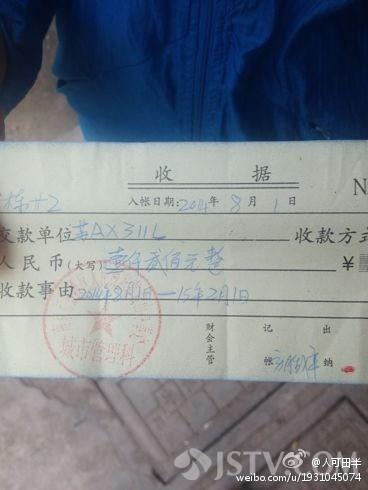 收据
入帐日期:2014年8月1日
栋+2
交款单位苏AX311L 收款方式
人民币(大写)壹仟贰佰元整 ¥
收款事由2014年8月1日—15年2月1日
城市管理科
财会主管 记帐 出纳
JSTV.COM
@人可田半
weibo.com/u/1931045074